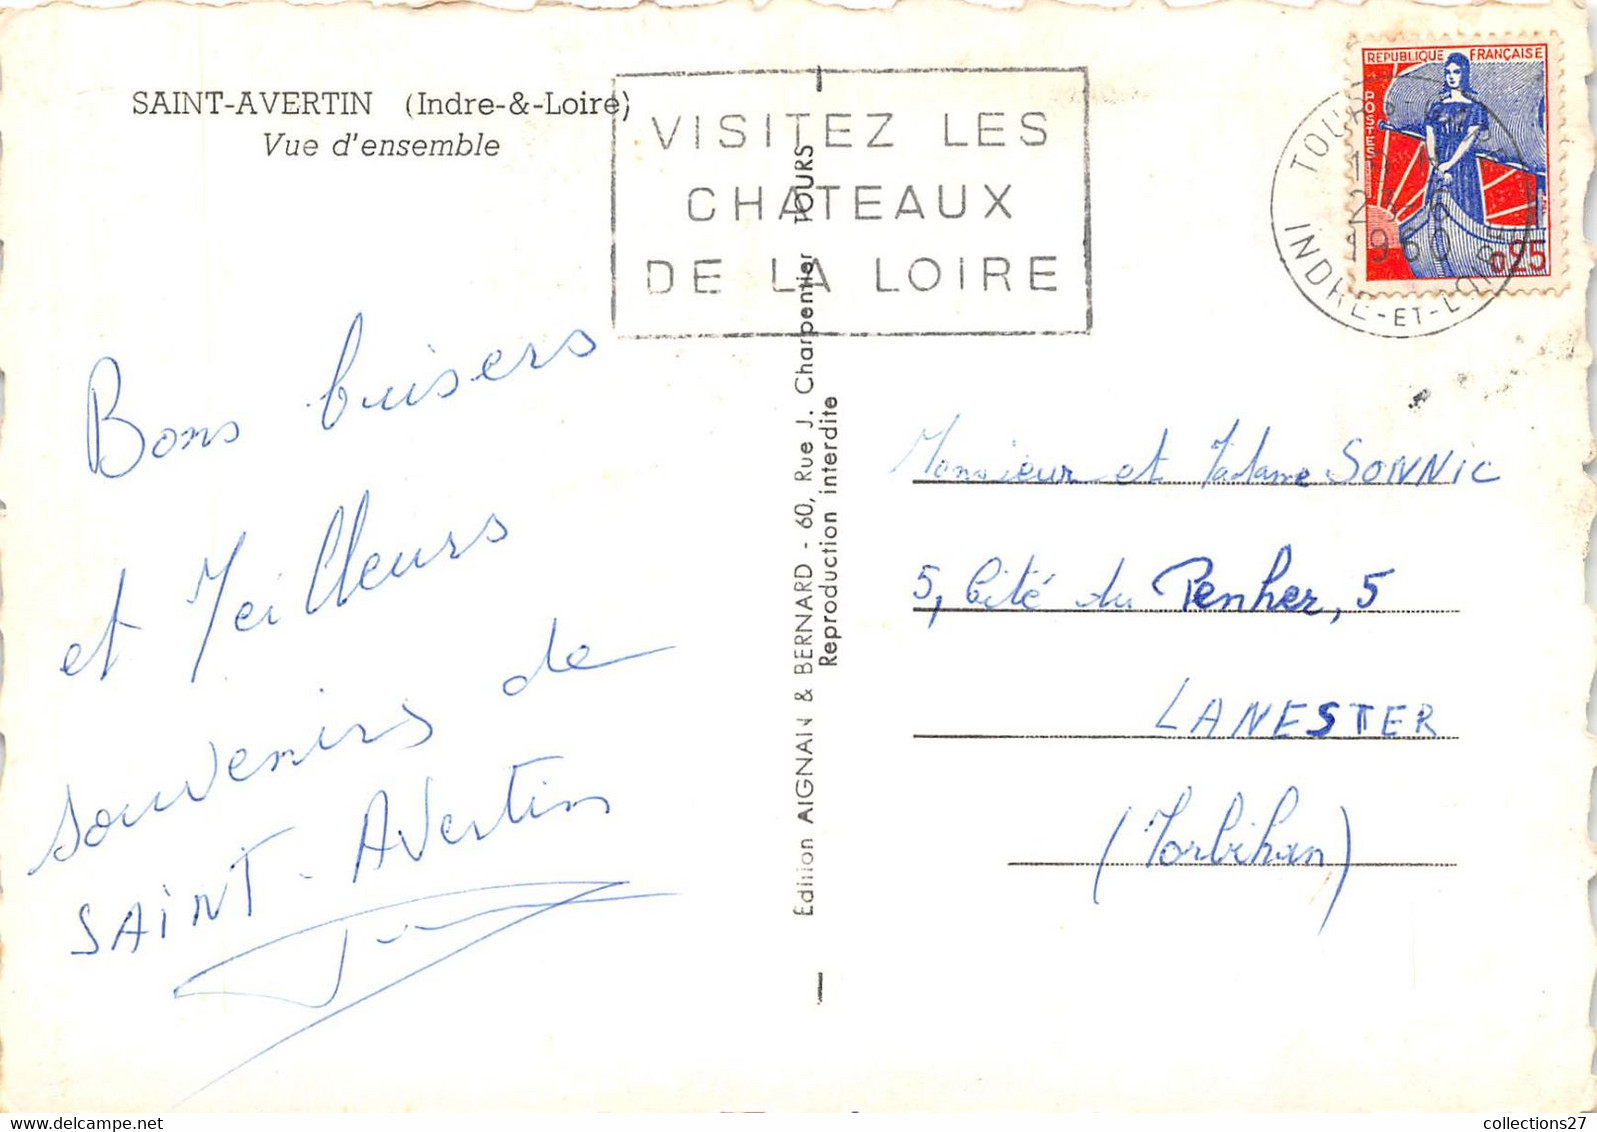 SAINT-AVERTIN (Indre-&-Loire)
Vue d'ensemble
VISITEZ LES
CHATEAUX
DE LA LOIRE
REPUBLIQUE FRANÇAISE
POSTES
0,25
TOURS
1960
INDRE-ET-LOIRE
Bons baisers
et Meilleurs
souvenirs de
SAINT-AVertin
Édition AIGNAN & BERNARD - 60, Rue J. Charpentier TOURS
Reproduction interdite
Monsieur et Madame SONNIC
5, Cité du Penher, 5
LANESTER
(Morbihan)
collections27